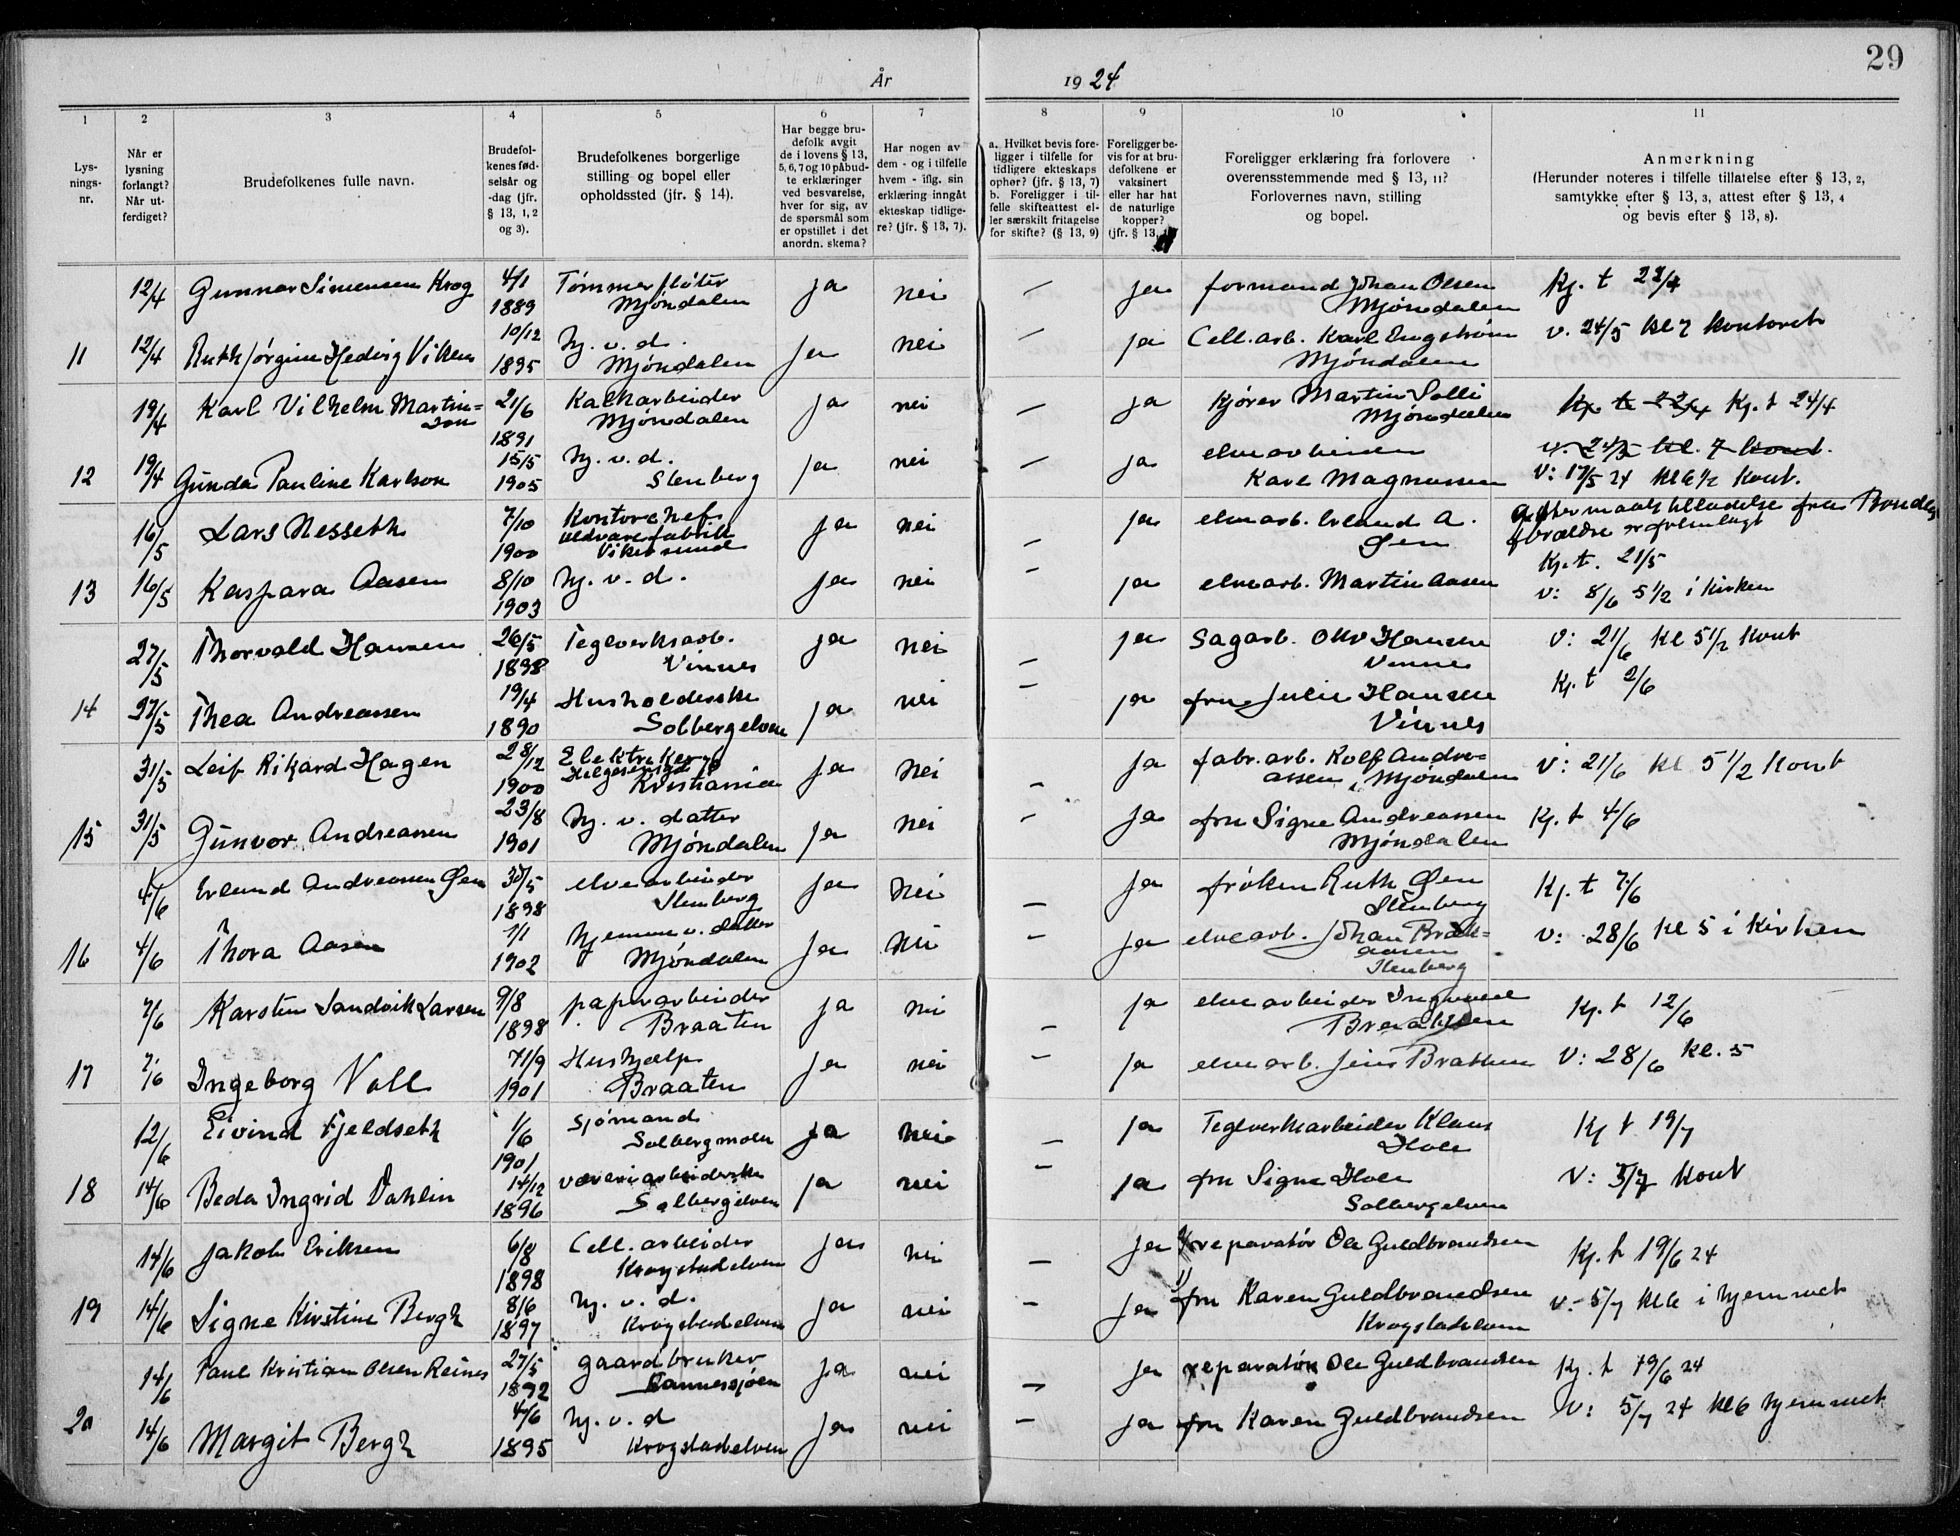 29
År 1924
1 2 3 4 5 6 7 8 9 10 11
Lys-
nings-
nr.
Når er
lysning
forlangt?
Når ut-
ferdiget?
Brudefolkenes fulle navn.
Brudefol-
kenes fød-
selsår og
-dag (jfr.
§ 13, 1, 2
og 3).
Brudefolkenes borgerlige
stilling og bopel eller
opholdssted (jfr. § 14).
Har begge bru-
defolk avgit
de i lovens § 13,
5, 6, 7 og 10 påbud-
te erklæringer
ved besvarelse,
hver for sig, av
de spørsmål som
er opstillet i det
anordn. skema?
Har nogen av
dem - og i tilfelle
hvem - iflg. sin
erklæring inngåt
ekteskap tidlige-
re? (jfr. § 13, 7).
a. Hvilket bevis fore-
ligger i tilfelle for
tidligere ekteskaps
ophør? (jfr. § 13, 7)
b. Foreligger i til-
felle skifteattest el-
ler særskilt fritagelse
for skifte? (§ 13, 9)
Foreligger be-
vis for at bru-
defolkene er
vaksinert
eller har hat
de naturlige
kopper?
(jfr. § 13,
Foreligger erklæring fra forlovere
overensstemmende med § 13, 11?
Forlovernes navn, stilling
og bopel.
Anmerkning
(Herunder noteres i tilfelle tillatelse efter § 13, 2,
samtykke efter § 13, 3, attest efter § 13, 4
og bevis efter § 13, 8).
12/4 Gunnar Simensen Krog 4/1 1889 Tømmerfløter Mjøndalen ja nei — ja formand Johan Olsen Mjøndalen Kj. t 22/4
11 12/4 Ruth Jørgine Hedvig Viken 10/12 1895 Hj. v. d. Mjøndalen ja nei — ja Cell. arb. Karl Engstrøm Mjøndalen v. 24/5 kl 7 kontoret
19/4 Karl Vilhelm Martin= son 21/6 1891 Kalkarbeider Mjøndalen ja nei — ja Kjører Martin Solli Mjøndalen Kj. t 22/4 Kj. t 24/4
12 19/4 Gunda Pauline Karlson 15/5 1905 Hj. v. d. Stenberg ja nei — ja elvearbeider Karl Magnussen v. 24/5 kl. 7 kont.
V: 17/5 24 kl 6 1/2 kont.
16/5 Lars Nesseth 7/10 1900 Kontorchef uldvarefabrik Vikersund ja nei — ja elvearb. Erland A. Øen
Kj. t. 21/5
13 16/5 Kaspara Aasen 8/10 1903 Hj. v. d. ja nei — ja elvearb. Martin Aasen V: 8/6 5 1/2 i kirken
27/5 Thorvald Hansen 26/5 1898 Teglverksarb. Vinnes ja nei — ja Sagarb. Olav Hansen Vinnes V: 21/6 kl 5 1/2 kont
14 27/5 Thea Andreassen 19/4 1890 Husholderske Solbergelven ja nei — ja fru Julie Hansen Vinnes Kj. t 2/6
31/5 Leif Rikard Hagen 28/12 1900 Elektriker Kristiania ja nei — ja fabr. arb. Rolf Andre- assen, Mjøndalen V: 21/6 kl 5 1/2 kont
15 31/5 Gunvor Andreassen 23/8 1901 Hj. v. datter Mjøndalen ja nei — ja fru Signe Andreassen Mjøndalen Kj. t 4/6
4/6 Erland Andreassen Øen 30/5 1898 elvearbeider Stenberg ja nei — ja frøken Ruth Øen Stenberg Kj. t 7/6
16 4/6 Thora Aasen 1/1 1902 hjemmev. datter Mjøndalen ja nei — ja elvearb. Johan Braat= aasen Stenberg V: 28/6 kl 5 i kirken
7/6 Karsten Sandvik Larsen 9/8 1898 papirarbeider Braaten ja nei — ja elvearbeider Ingvald Kj. t 12/6
17 7/6 Ingeborg Voll 1901 Hushjælp Braaten ja nei — ja elvearb. Jens Bratten V: 28/6 kl. 5
12/6 Eivind Fjeldseth 1/6 1901 Sjømand Solbergmoen ja nei — ja Teglverksarbeider Klaus Hvee Kj t 19/7
18 14/6 Beda Ingrid Dahlin 14/12 1896 væveriarbeiderske Solbergelven ja nei — ja fru Signe Hvee Solbergelven V: 5/7 kont
14/6 Jakob Eriksen 6/8 1898 Cell. arbeider Krogstadelven ja nei — ja reparatør Ole Guldbrandsen Kj. t 19/6 24
19 14/6 Signe Kirstine Bergh 8/6 1897 Hj. v. d. Krogstadelven ja nei — ja fru Karen Guldbrandsen Krogstadelven v: 5/7 kl 6 i hjemmet
14/6 Paul Kristian Olsen Reines 27/5 1892 gaardbruker Sannessjøen ja nei — ja reparatør Ole Guldbrandsen Kj. t 19/6 24
20 14/6 Margit Bergh 4/6 1895 Hj. v. d Krogstadelven ja nei — ja fru Karen Guldbrandsen V: 5/7 24 kl 6 hjemmet